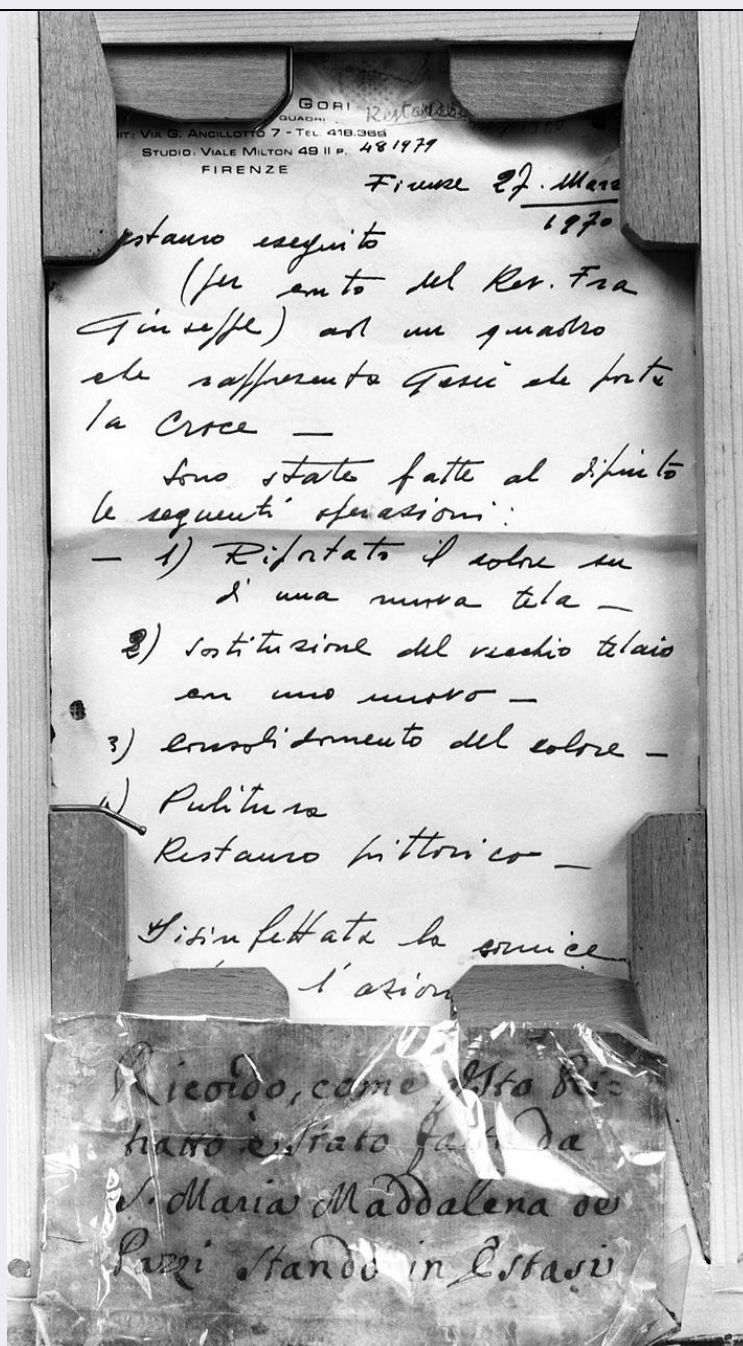 GORI
QUADRI Restauro
VIA G. ANCILLOTTO 7 - TEL. 418.366
STUDIO: VIALE MILTON 49 II P. 481979
FIRENZE
Firenze 27. Marz
1970
estauro eseguito
(per conto del Rev. Fra
Giuseppe) ad un quadro
che rappresenta Gesù che porta
la Croce —
Sono state fatte al dipinto
le seguenti operazioni:
— 1) Riportato il colore su
di una nuova tela —
2) Sostituzione del vecchio telaio
con uno nuovo —
3) Consolidamento del colore —
4) Pulitura
Restauro pittorico —
Disinfettata la cornice
l'azion
Ricordo, come qsto Ri=
tratto è stato fatto da
S. Maria Maddalena de
Pazzi stando in Estasi